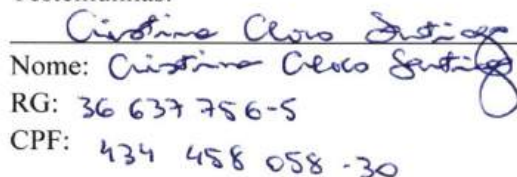 Testemunhas:
Cristina Cloco Santiago
Nome: Cristina Cloco Santiago
RG: 36 637 756-5
CPF: 434 458 058 -30